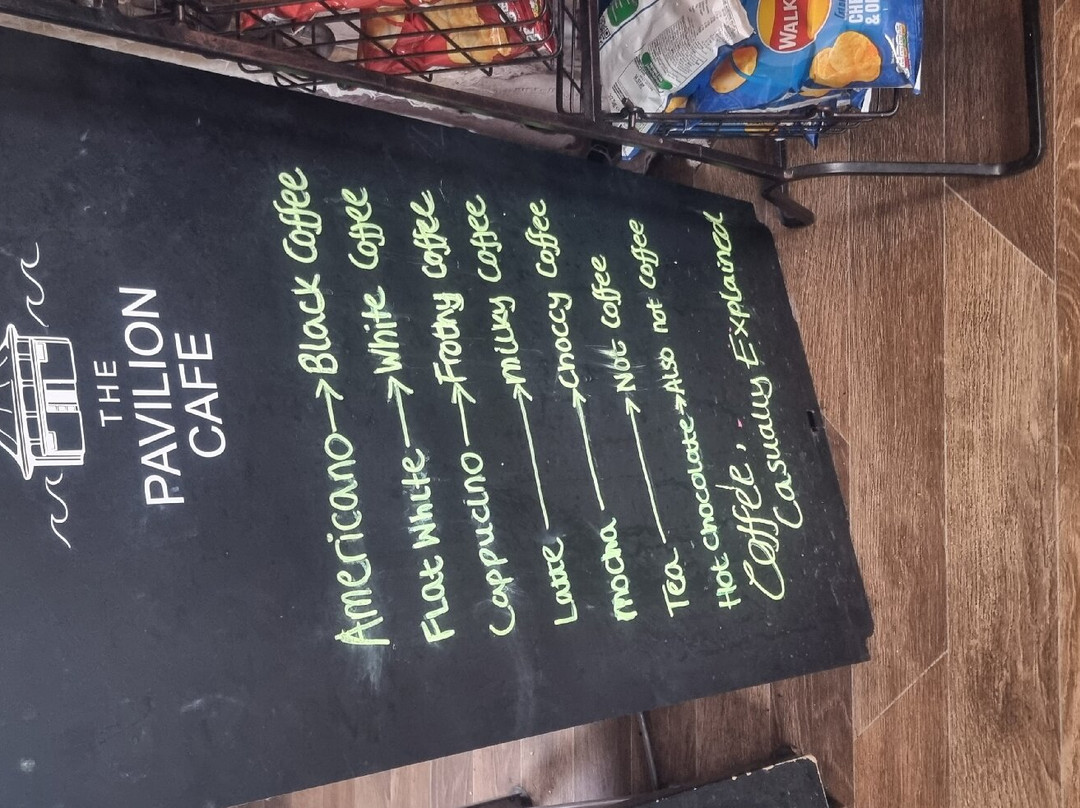 THE
PAVILION
CAFE
Americano → Black Coffee
Flat White → White Coffee
Cappucino → Frothy Coffee
Latte → Milky Coffee
Mocha → Choccy Coffee
Tea → Not Coffee
Hot Chocolate → Also not Coffee
Coffee,
Casually Explained
WALK
CH
& O